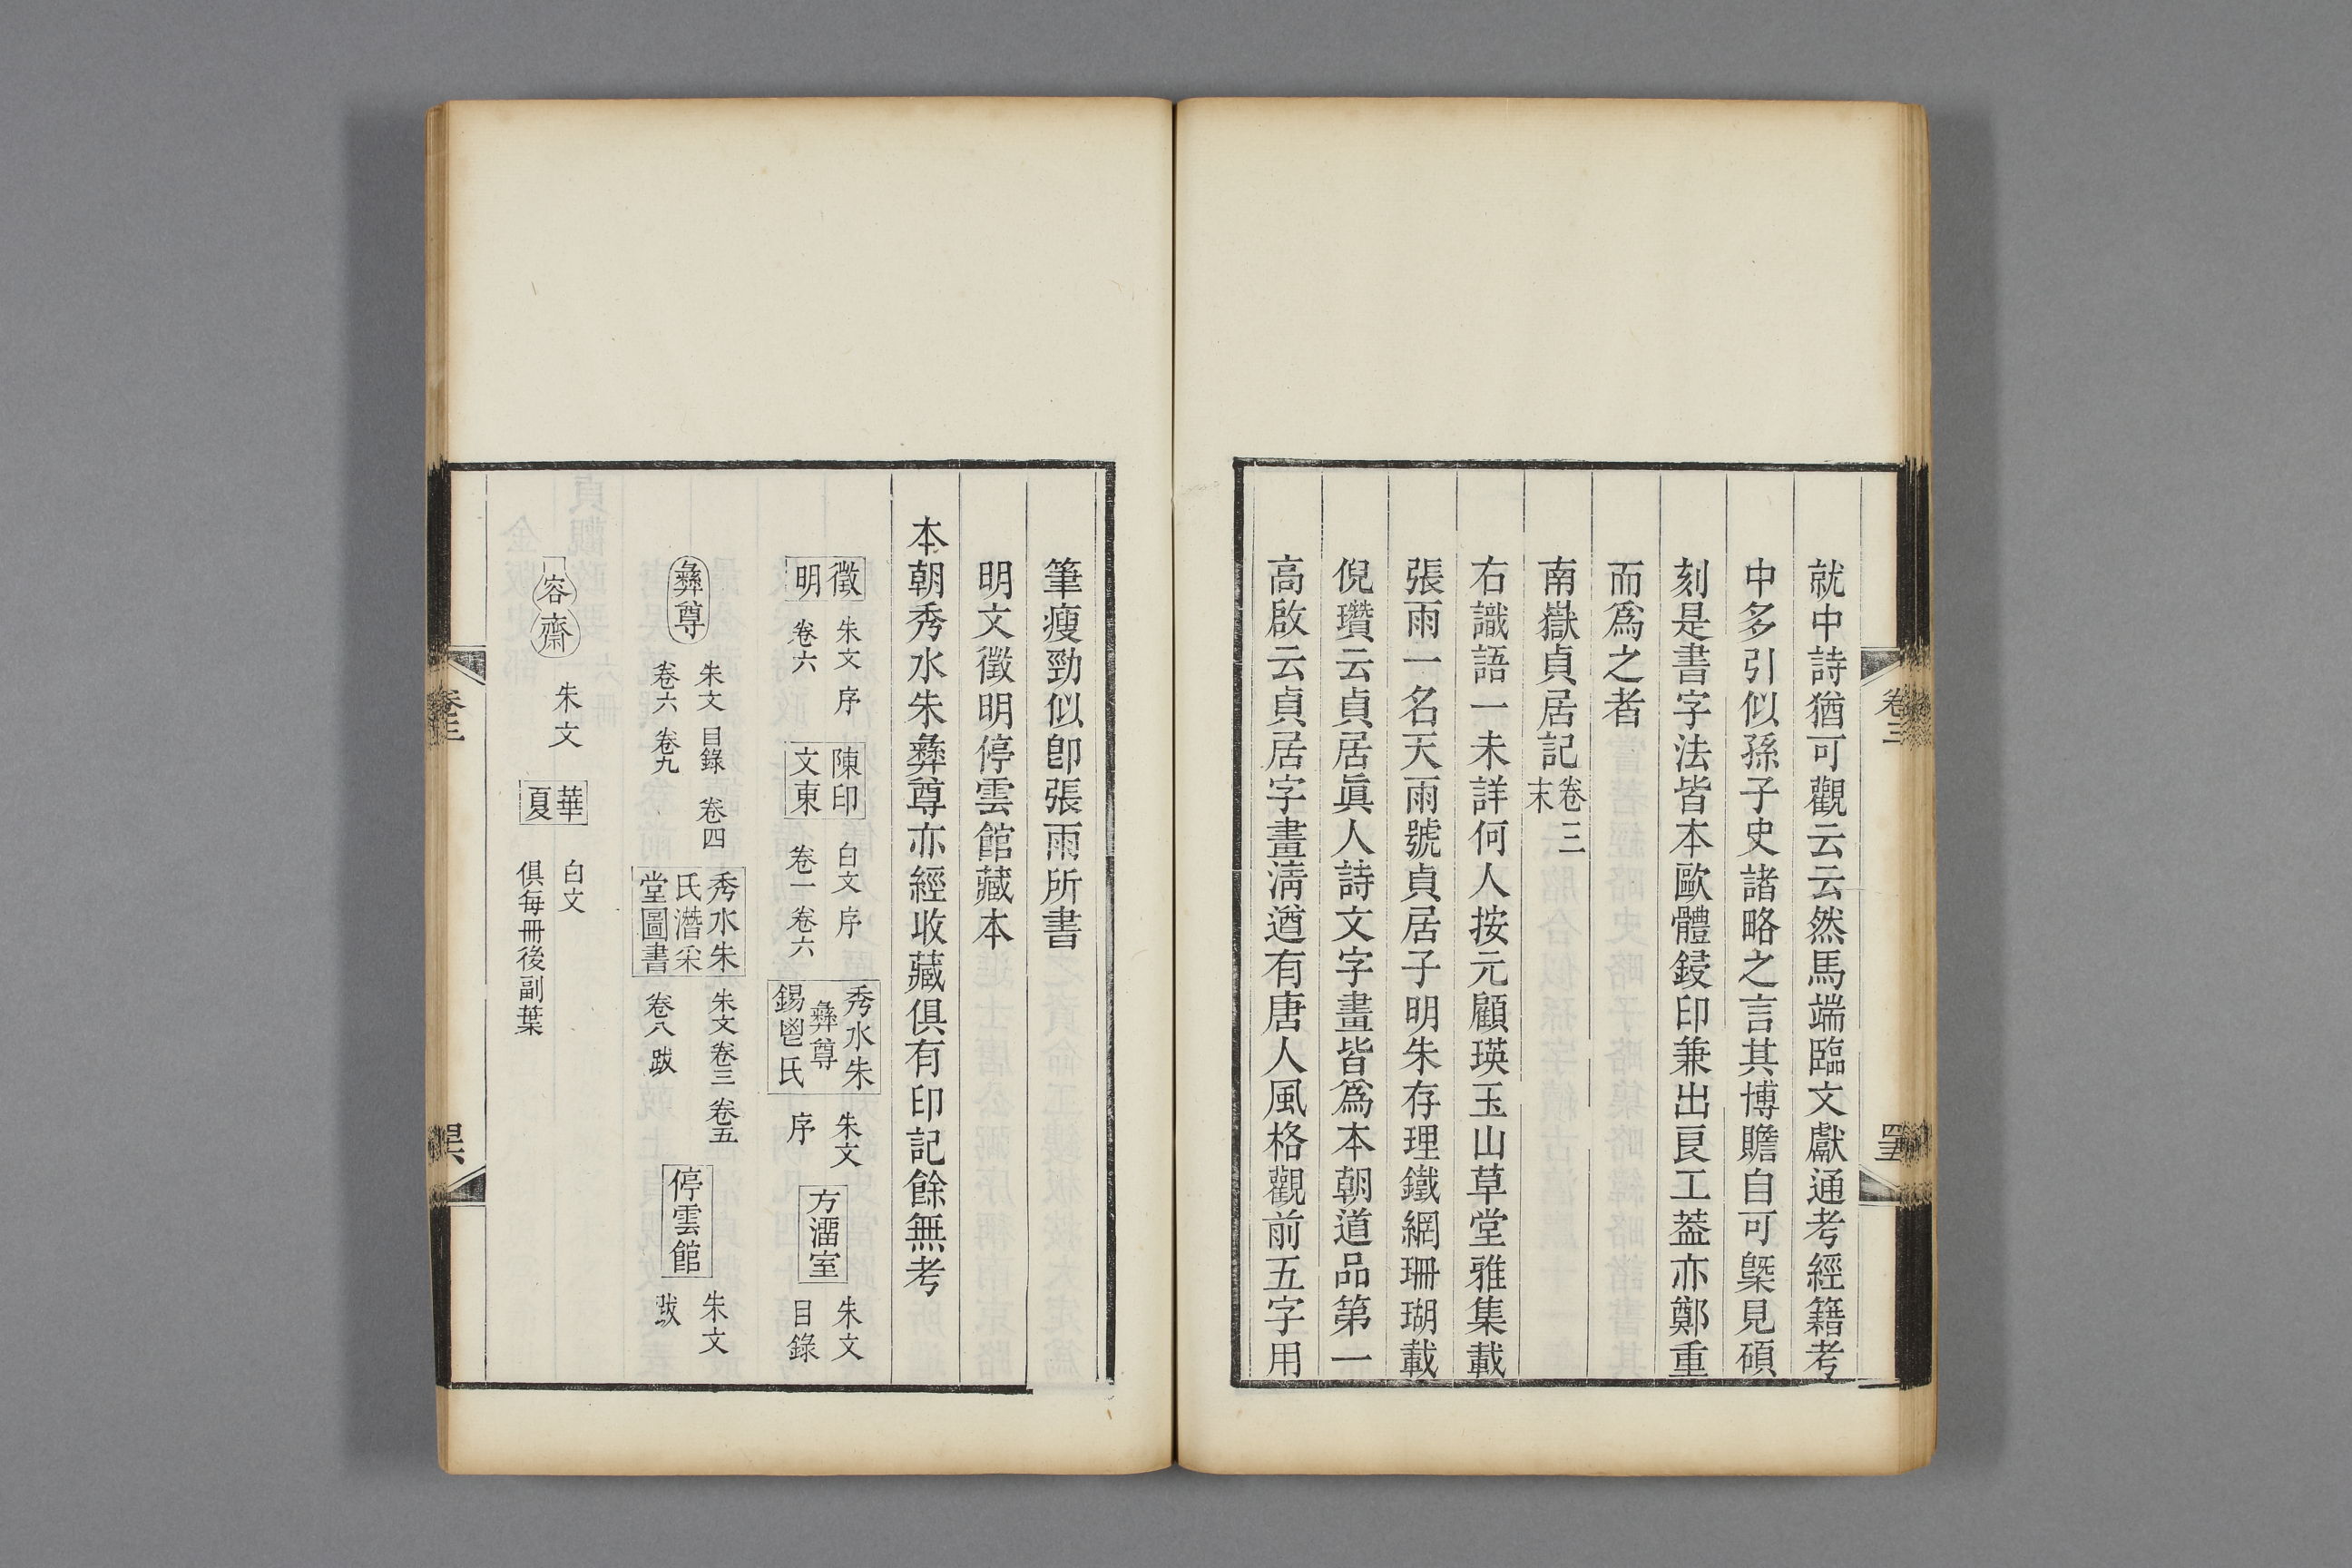 就中詩猶可觀云云然馬端臨文獻通考經籍考
中多引似孫子史諸略之言其博贍自可槩見碩
刻是書字法皆本歐體鋟印兼出良工葢亦鄭重
而爲之者
南嶽貞居記卷三末
右識語一未詳何人按元顧瑛玉山草堂雅集載
張雨一名天雨號貞居子明朱存理鐵網珊瑚載
倪瓚云貞居眞人詩文字畫皆爲本朝道品第一
高啟云貞居字畫淸遒有唐人風格觀前五字用
筆瘦勁似卽張雨所書
明文徵明停雲館藏本
本朝秀水朱彝尊亦經收藏俱有印記餘無考
徵明 朱文 序 卷六 陳印文東 白文 序 卷一 卷六 秀水朱彝尊錫鬯氏 朱文 序 方澑室 朱文 目錄
彝尊 朱文 目錄 卷四 卷六 卷九 秀水朱氏潛采堂圖書 朱文 卷三 卷五 卷八 跋 停雲館 朱文 跋
容齋 朱文 華夏 白文 俱每冊後副葉
卷三